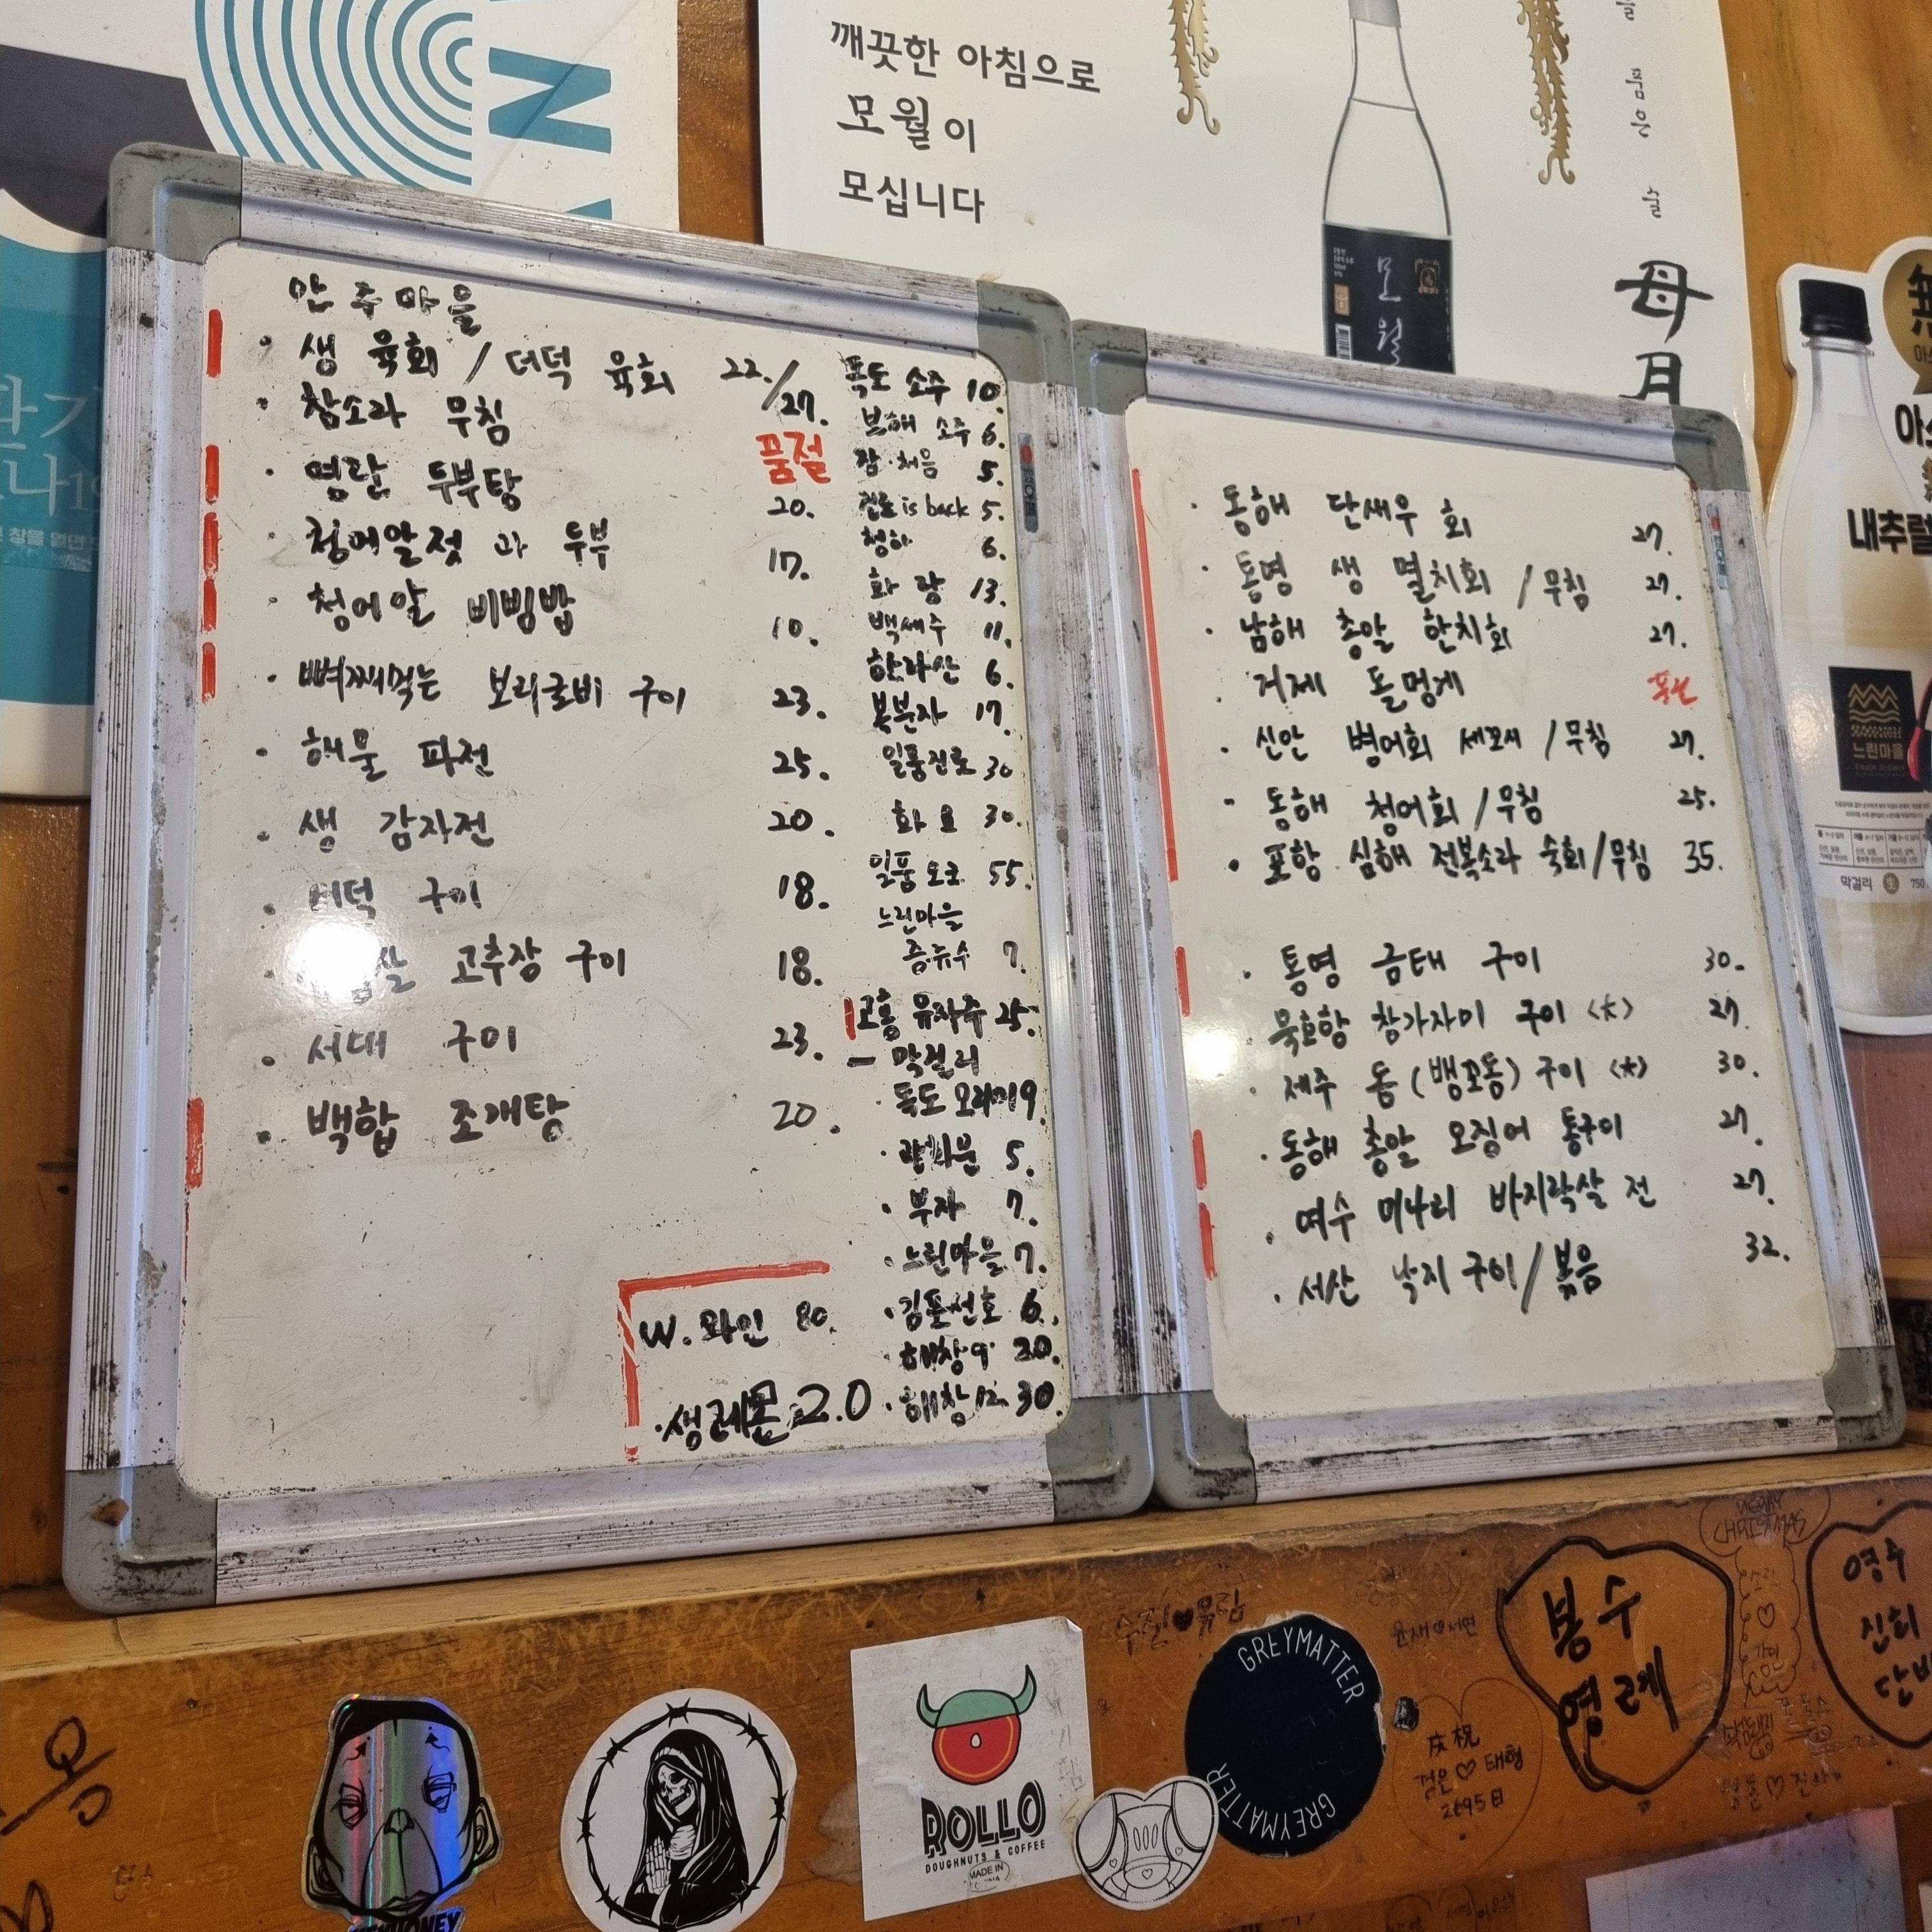 깨끗한 아침으로
모월이
모십니다
모월
母月
안주마을
· 생 육회 / 더덕 육회 22./27.
· 참소라 무침 품절
· 명란 두부탕 20.
· 청어알젓 과 두부 17.
· 청어알 비빔밥 10.
· 뼈째먹는 보리굴비 구이 23.
· 해물 파전 25.
· 생 감자전 20.
· 더덕 구이 18.
살 고추장 구이 18.
· 서대 구이 23.
· 백합 조개탕 20.
독도 소주 10.
보해 소주 6.
참·처음 5.
진로 is back 5.
청하 6.
화랑 13.
백세주 11.
한라산 6.
복분자 17.
일품진로 30
화요 30.
일품 오크 55.
느린마을
증류수 7.
고흥 유자주 25.
- 막걸리
· 독도 9.
5.
· 부자 7.
· 느린마을 7.
· 김포선호 6.
· 해창 9 20.
· 해창 12. 30.
W. 와인 80.
· 생레몬 2.0
· 동해 단새우 회 27.
· 통영 생 멸치회 / 무침 27.
· 남해 총알 한치회 27.
· 거제 돌멍게 품절
· 신안 병어회 세꼬시 / 무침 27.
· 동해 청어회 / 무침 25.
· 포항 심해 전복소라 숙회/무침 35.
· 통영 금태 구이 30.
· 묵호항 참가자미 구이 <*> 27.
· 제주 돔 (뱅꼬돔) 구이 <*> 30.
· 동해 총알 오징어 통구이 27.
· 여수 미나리 바지락살 전 27.
· 서산 낙지 구이 / 볶음 32.
내추럴
느린마을
막걸리
MERRY
CHRISTMAS
봉수
영레
영주
진희
GREYMATTER
GREYMATTER
ROLLO
DOUGHNUTS & COFFEE
MADE IN